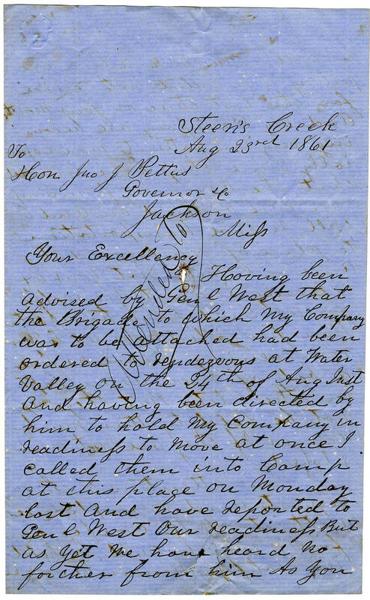 Steen's Creek
Aug 23rd 1861
To
Hon Jno J Pettus
Governor &c
Jackson
Miss
Your Excellency
Having been
advised by Genl West that
the Brigade to which My Company
was to be attached had been
ordered to rendezvous at Water
Valley on the 24th of Aug Inst
And having been directed by
him to hold My Company in
readiness to Move at once I
called them into Camp
at this place on Monday
last And have reported to
Genl West Our readiness But
as yet We have heard No
forther from him As You